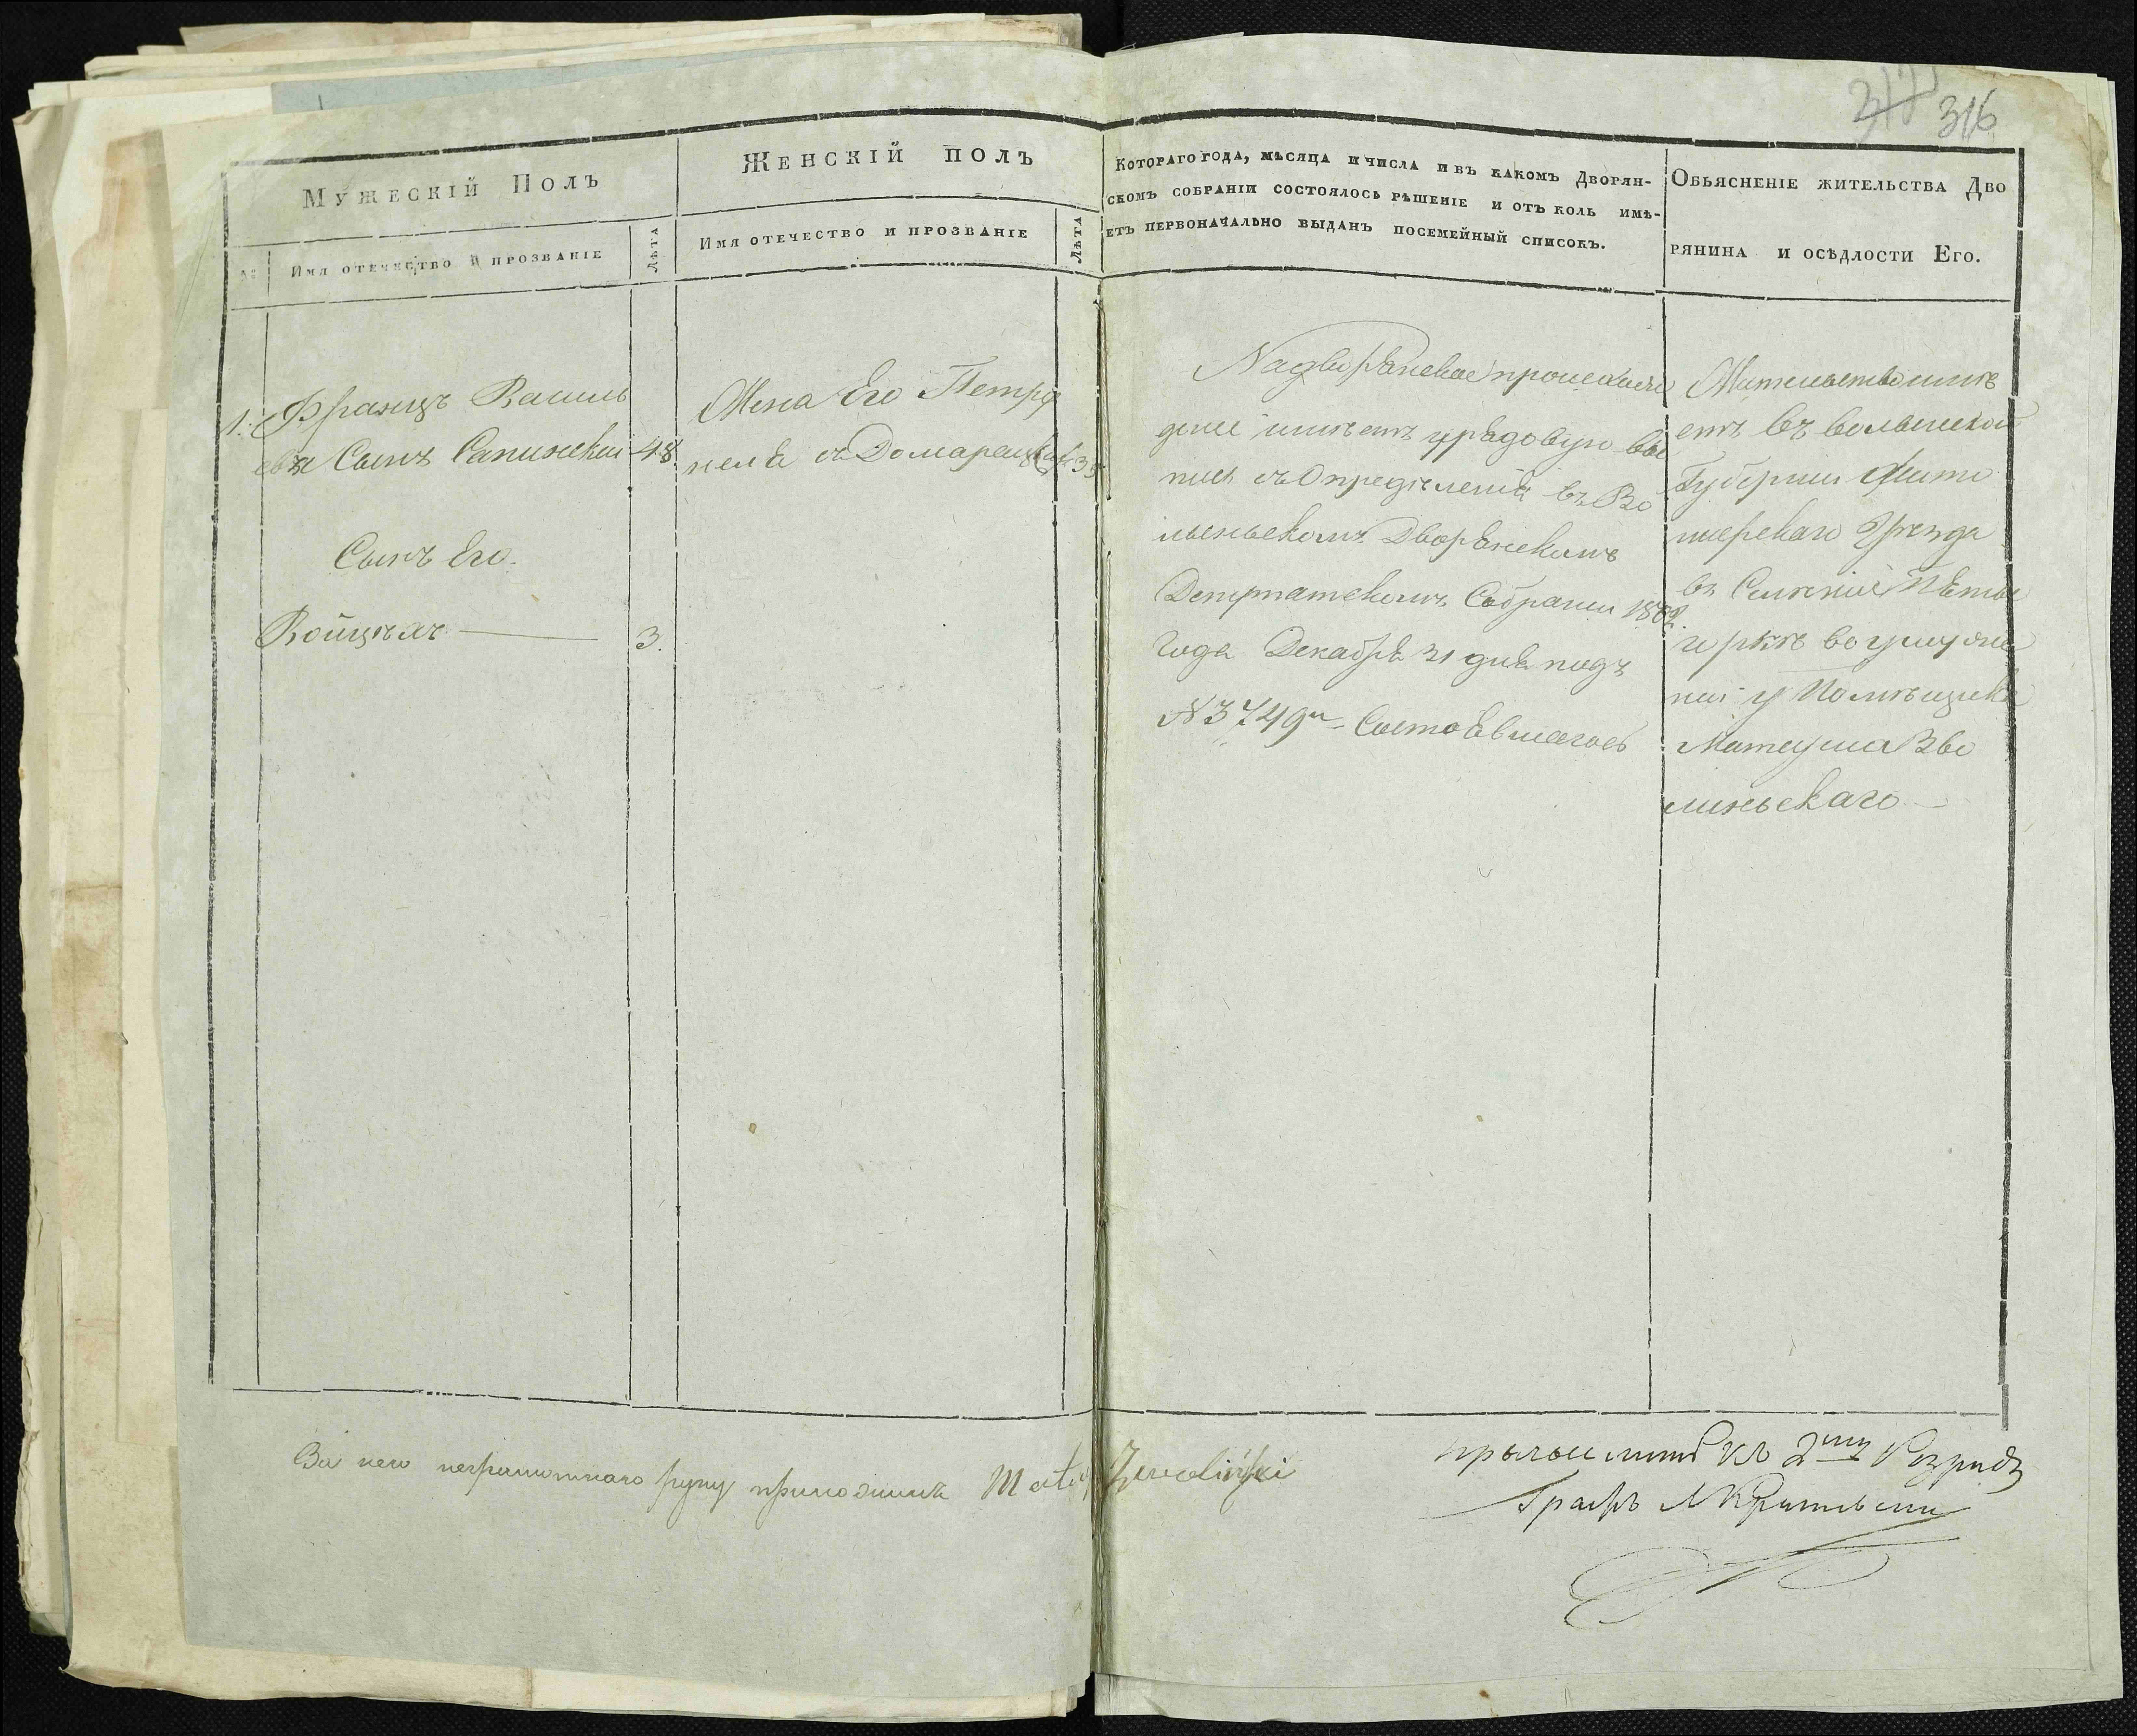 316
Мужескій Полъ
Женскій полъ
Котораго года, мѣсяца и числа и въ какомъ Дворян-
скомъ собраніи состоялось рѣшеніе и отъ коль имѣ-
етъ первоначально выданъ посемейный списокъ.
Объясненіе жительства Дво
рянина и осѣдлости Его.
№ Имя отечество и прозваніе
Лѣта
Имя отечество и прозваніе
Лѣта
1. Францъ Василь
евъ Сынъ Сапижскій 48.
Сынъ Его.
Войцѣхъ 3.
Жена Его Петро
неля съ Домарацкихъ
На дворянское происхож
деніе имѣетъ урядовую вы
пись съ Определенія въ Во
лынскомъ Дворянскомъ
Депутатскомъ Собраніи 1802
года Декабря 31 дня подъ
№ 3749 Состоявшагось
Жительство имѣ
етъ въ Волынской
Губерніи Жито
мерскаго Уѣзда
въ
у Помѣщика
Матеуша Зво
линьскаго
За него неграмотнаго руку приложилъ Mateusz Zwoliński
ко 2му Разряду
Графъ